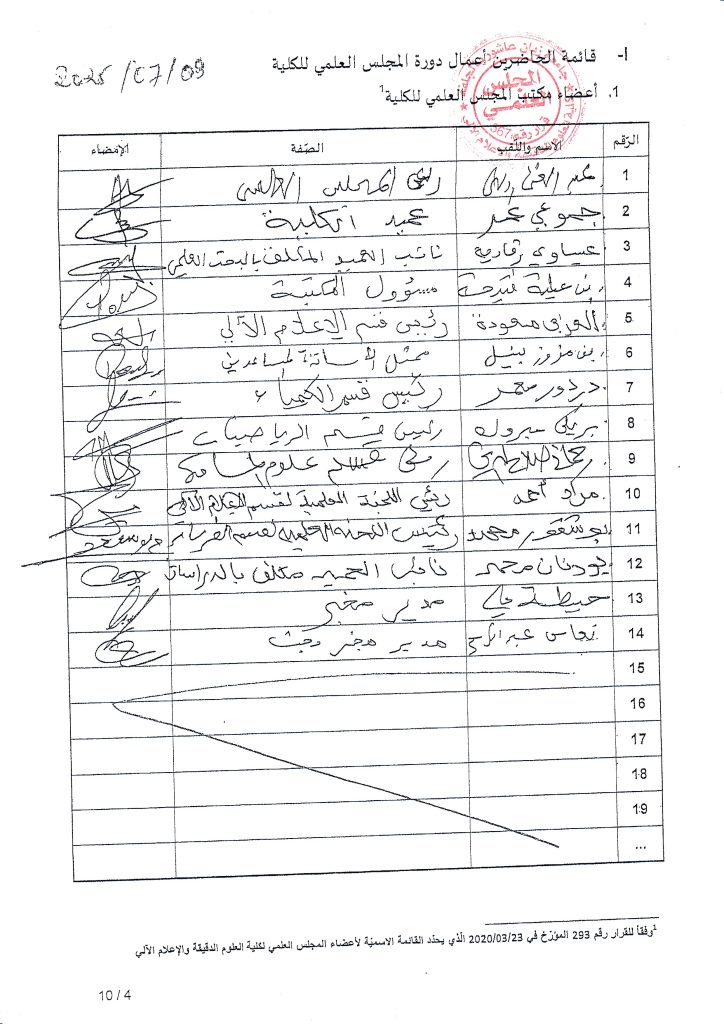 2025/07/09
I- قائمة الحاضرين أعمال دورة المجلس العلمي للكلية
1. أعضاء مكتب المجلس العلمي للكلية1
المجلس
العلمي
الرّقم الاسم واللّقب الصّفة الإمضاء
1 رئيس المجلس العلمي
2 جموعي عمر عميد الكلية
3 عيساوي نائب العميد المكلف بالبحث العلمي
4 بن عيلية فتيحة مسؤول المكتبة
5 العربي مسعودة رئيس قسم الإعلام الآلي
6 بن مزوز نبيل ممثل الأساتذة المساعدين
7 دردور معمر رئيس قسم الكيمياء
8 بريكي مبروك رئيس قسم الرياضيات
9 رئيس قسم علوم المادة
10 مراد أحمد رئيس اللجنة العلمية لقسم الإعلام الآلي
11 بوشقور محمد رئيس اللجنة العلمية لقسم
12 بودنان محمد نائب العميد مكلف بالدراسات
13 مدير مخبر
14 نعاس مدير مخبر بحث
15
16
17
18
19
...
1وفقاً للقرار رقم 293 المؤرّخ في 2020/03/23 الّذي يحدّد القائمة الاسميّة لأعضاء المجلس العلمي لكلية العلوم الدقيقة والإعلام الآلي
10/4